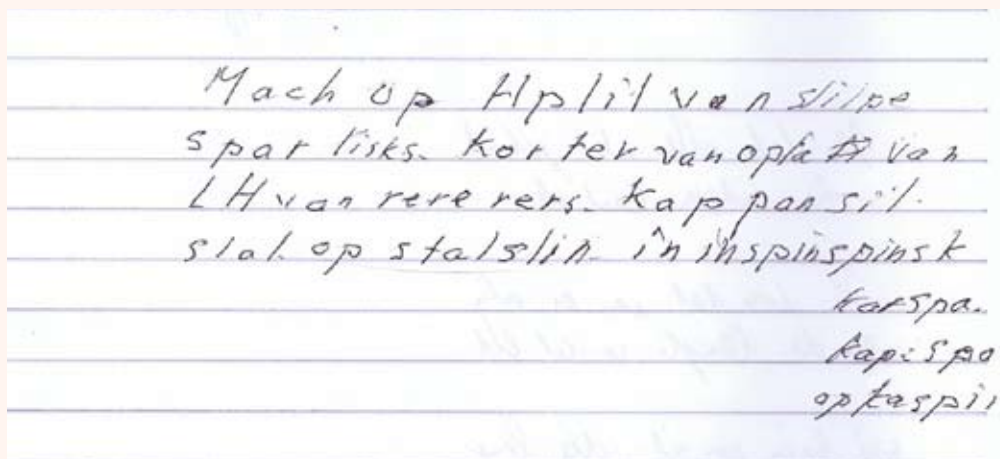 Mach op Hplil van slilpe
spar lisks. korter van opla van
LH van rere rers. kap pan sil.
slal. op stalslin. în inspinspinsk
karspa.
kap: spa
opkaspii